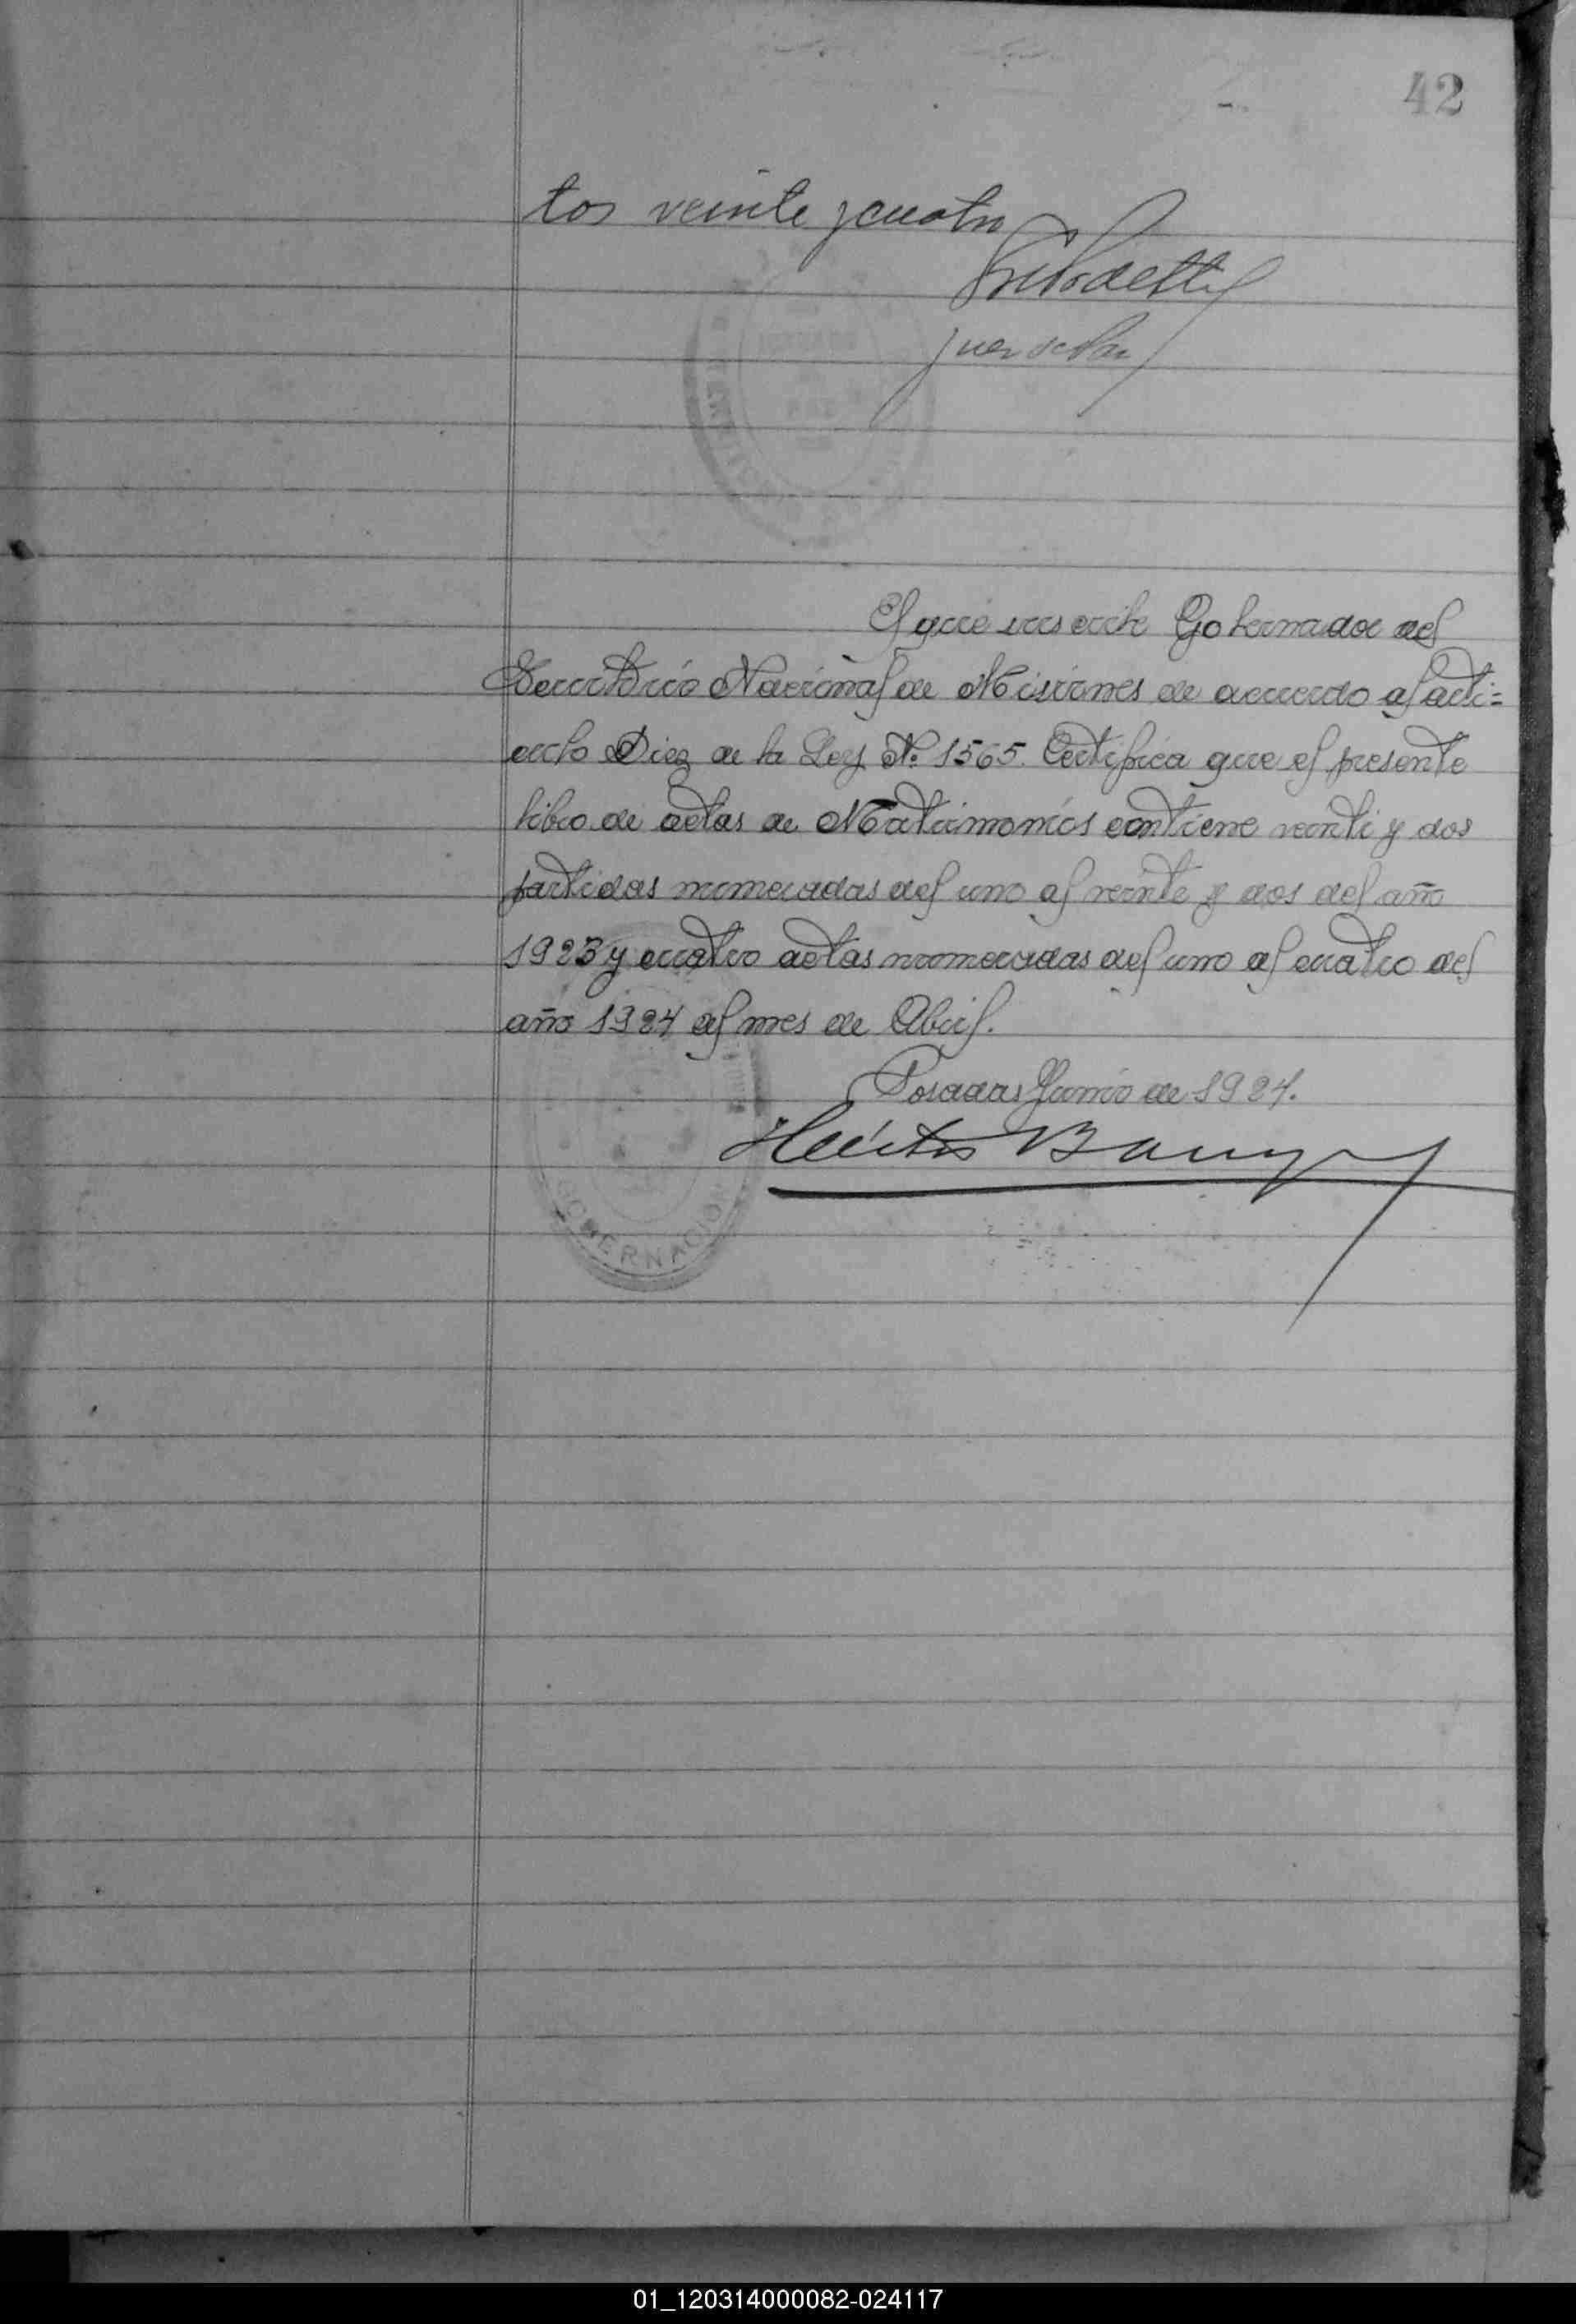 42
tos veinte y cuatro
Juez de Paz
El que suscribe Gobernador del
Territorio Nacional de Misiones de acuerdo al arti=
culo Diez de la Ley Nº 1565. Certifica que el presente
libro de actas de Matrimonios contiene veinti y dos
partidas numeradas del uno al veinte y dos del año
1923 y cuatro actas numeradas del uno al cuatro del
año 1924 al mes de Abril.
Posadas Junio de 1924.
Héctor Barreyro
GOBERNACION
01_120314000082-024117